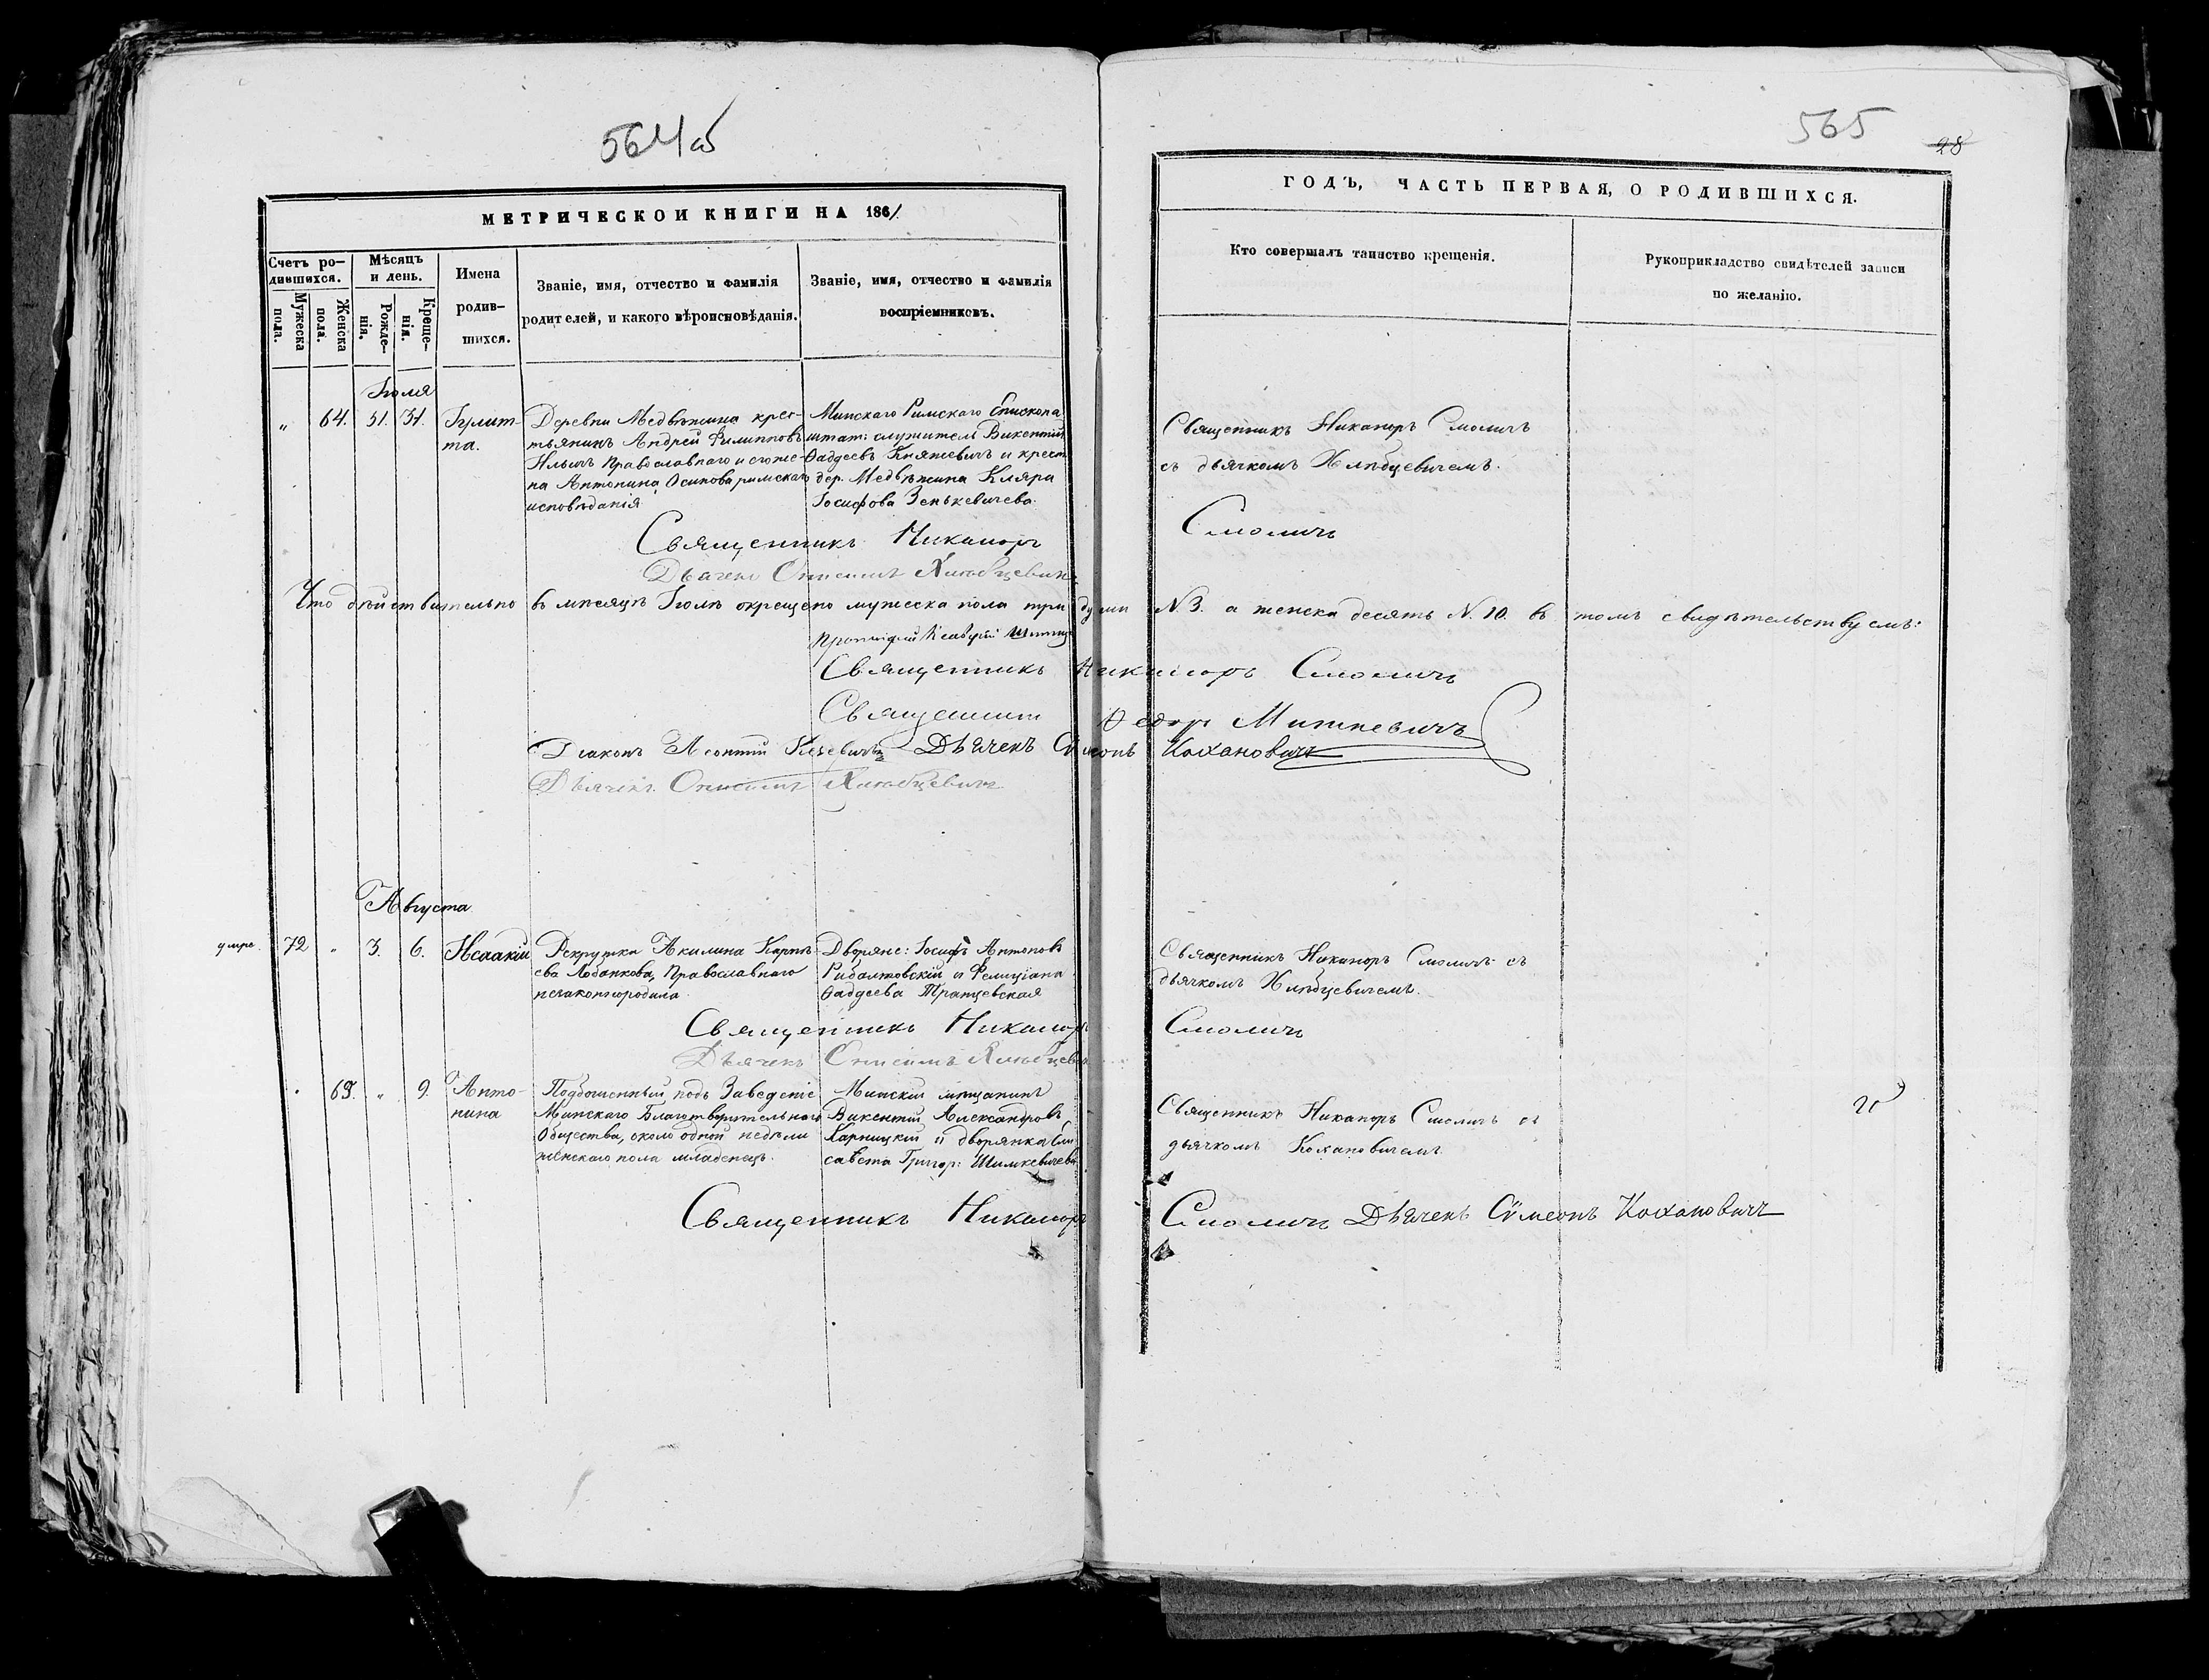 564 об
565
28
МЕТРИЧЕСКОЙ КНИГИ НА 1861
ГОДЪ, ЧАСТЬ ПЕРВАЯ, О РОДИВШИХСЯ.
Счетъ ро-
дившихся.
Мужеска
пола.
Женска
пола.
Мѣсяцъ
и день.
Рожде-
нія.
Креще-
нія.
Имена
родив-
шихся.
Званіе, имя, отчество и фамилія
родителей, и какого вѣроисповѣданія.
Званіе, имя, отчество и фамилія
воспріемниковъ.
Кто совершалъ таинство крещенія.
Рукоприкладство свидѣтелей записи
по желанію.
Іюля
" 64. 31. 31.
Іулит-
та.
Деревни Медвѣжина крес-
тьянинъ Андрей Филипповъ
Ильичъ Православнаго и его же-
на Антонина Осипова римскаго
исповѣданія
Минскаго Римскаго Епископа
штат: служитель Викентій
Ѳаддеевъ Княжевичъ и крест:
дер. Медвѣжина Кляра
Іосифова Зенькевичева.
Священникъ Никаноръ Смоличъ
съ дьячкомъ Хлѣбцевичемъ.
Священникъ Никаноръ Смоличъ
Дьячекъ Онисимъ Хлѣбцевичъ
Что дѣйствительно въ мѣсяцѣ Іюлѣ окрещено мужеска пола три души N. 3. а женска десять N. 10. въ томъ свидѣтельствуемъ:
Священникъ Никаноръ Смоличъ
Священникъ Ѳедоръ Миткевичъ
Діаконъ Леонтій Дьячекъ Сѵмеонъ Кохановичъ
Дьячекъ Онисимъ Хлѣбцевичъ
Августа
умре.
72 " 3. 6.
Исаакій
Рекрутка Акилина Карпѣ-
ева Лобанкова, Православнаго
незаконнородила.
Дворяне: Іосифъ Антоновъ
Рибалтовскій и Фелиціана
Ѳаддеева Транцевская
Священникъ Никаноръ Смоличъ съ
дьячкомъ Хлѣбцевичемъ.
Священникъ Никаноръ Смоличъ
Дьячекъ Онисимъ Хлѣбцевичъ
" 65. " 9.
Анто-
нина
Подброшенный подъ Заведеніе
Минскаго Благотворительнаго
Общества, около одной недѣли
женскаго пола младенецъ.
Минскій мѣщанинъ
Викентій Александровъ
Карницкій и дворянка Ели-
савета Григор: Шимкевичева
Священникъ Никаноръ Смоличъ съ
дьячкомъ Кохановичемъ
Священникъ Никаноръ Смоличъ Дьячекъ Сѵмеонъ Кохановичъ